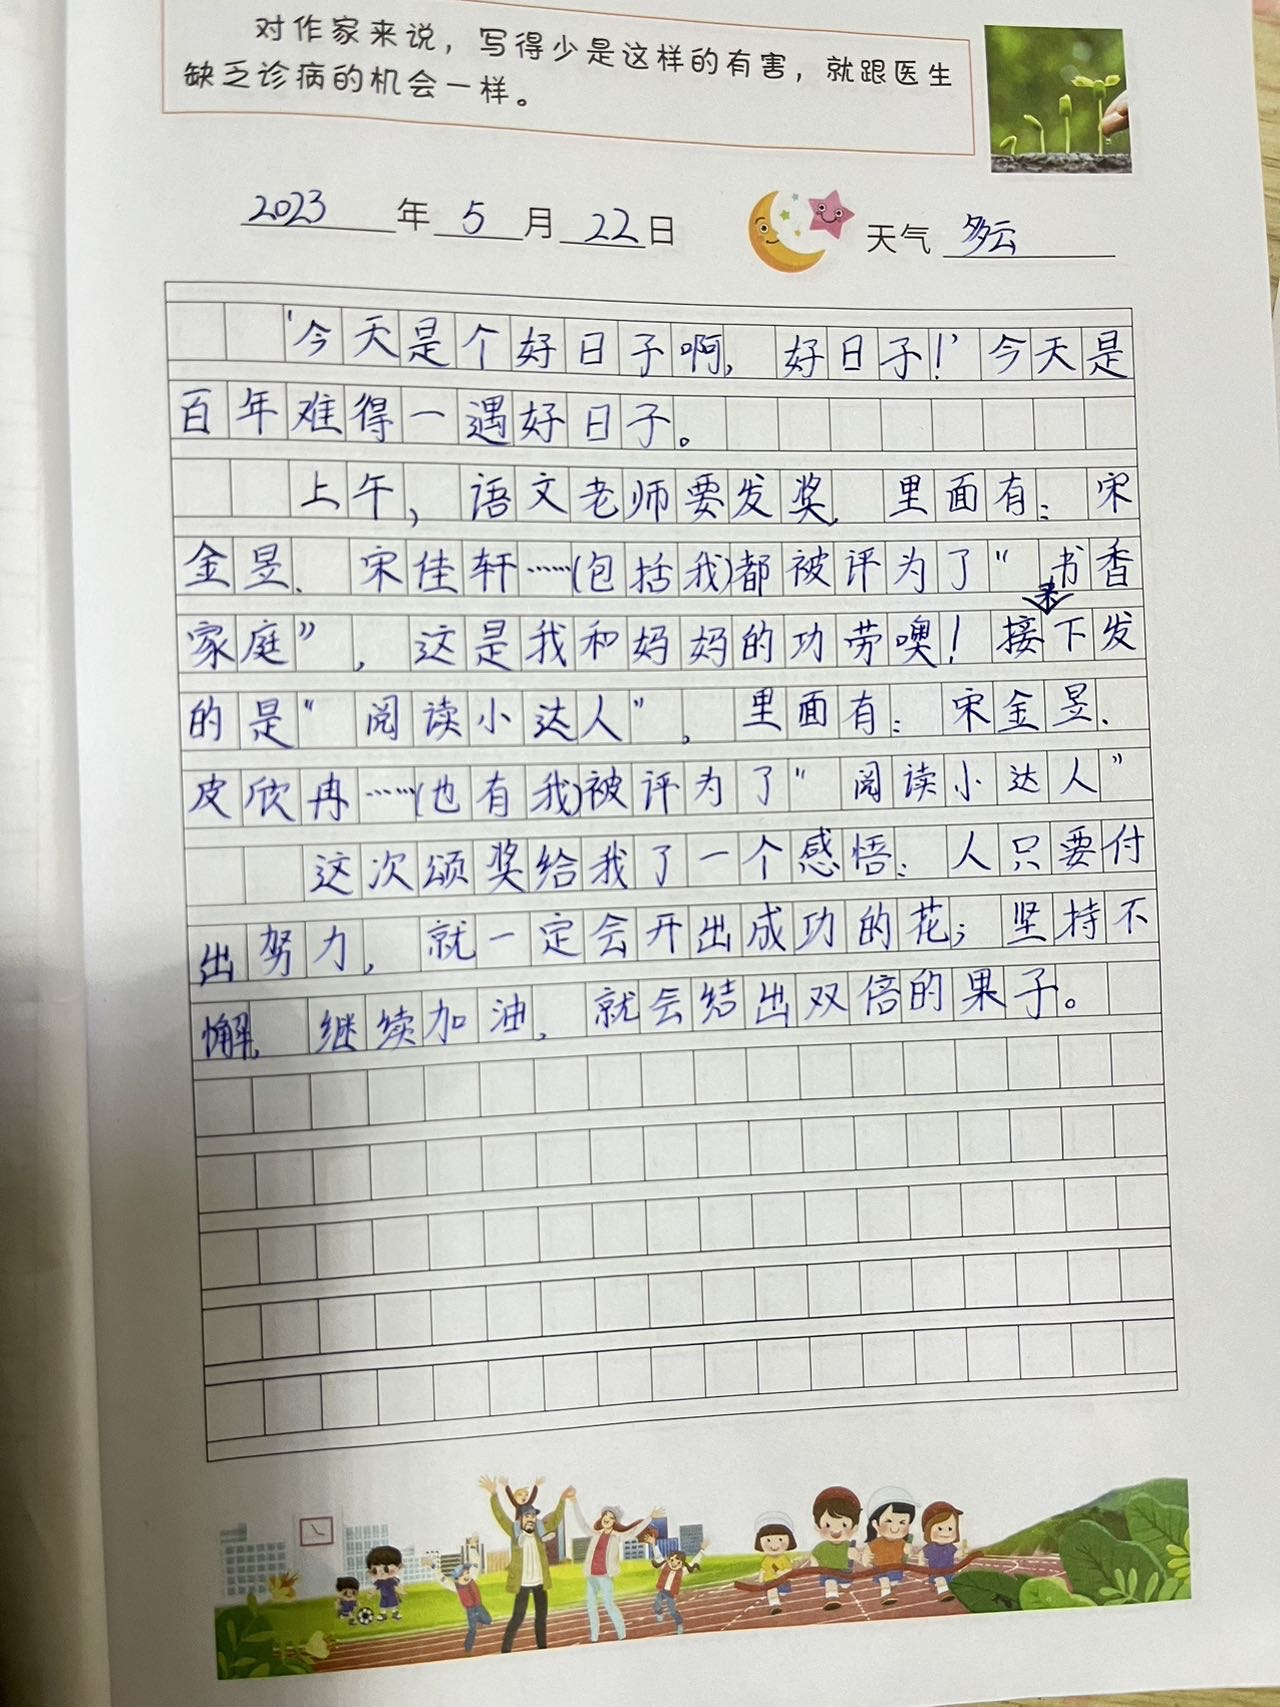 对作家来说，写得少是这样的有害，就跟医生
缺乏诊病的机会一样。
2023年5月22日 天气 多云
‘今天是个好日子啊，好日子！’今天是
百年难得一遇好日子。
上午，语文老师要发奖，里面有：宋
金昱、宋佳轩……(包括我)都被评为了“书香
家庭”，这是我和妈妈的功劳噢！接来下发
的是“阅读小达人”，里面有：宋金昱、
皮欣冉……(也有我)被评为了“阅读小达人”
这次颁奖给我了一个感悟：人只要付
出努力，就一定会开出成功的花；坚持不
懈，继续加油，就会结出双倍的果子。